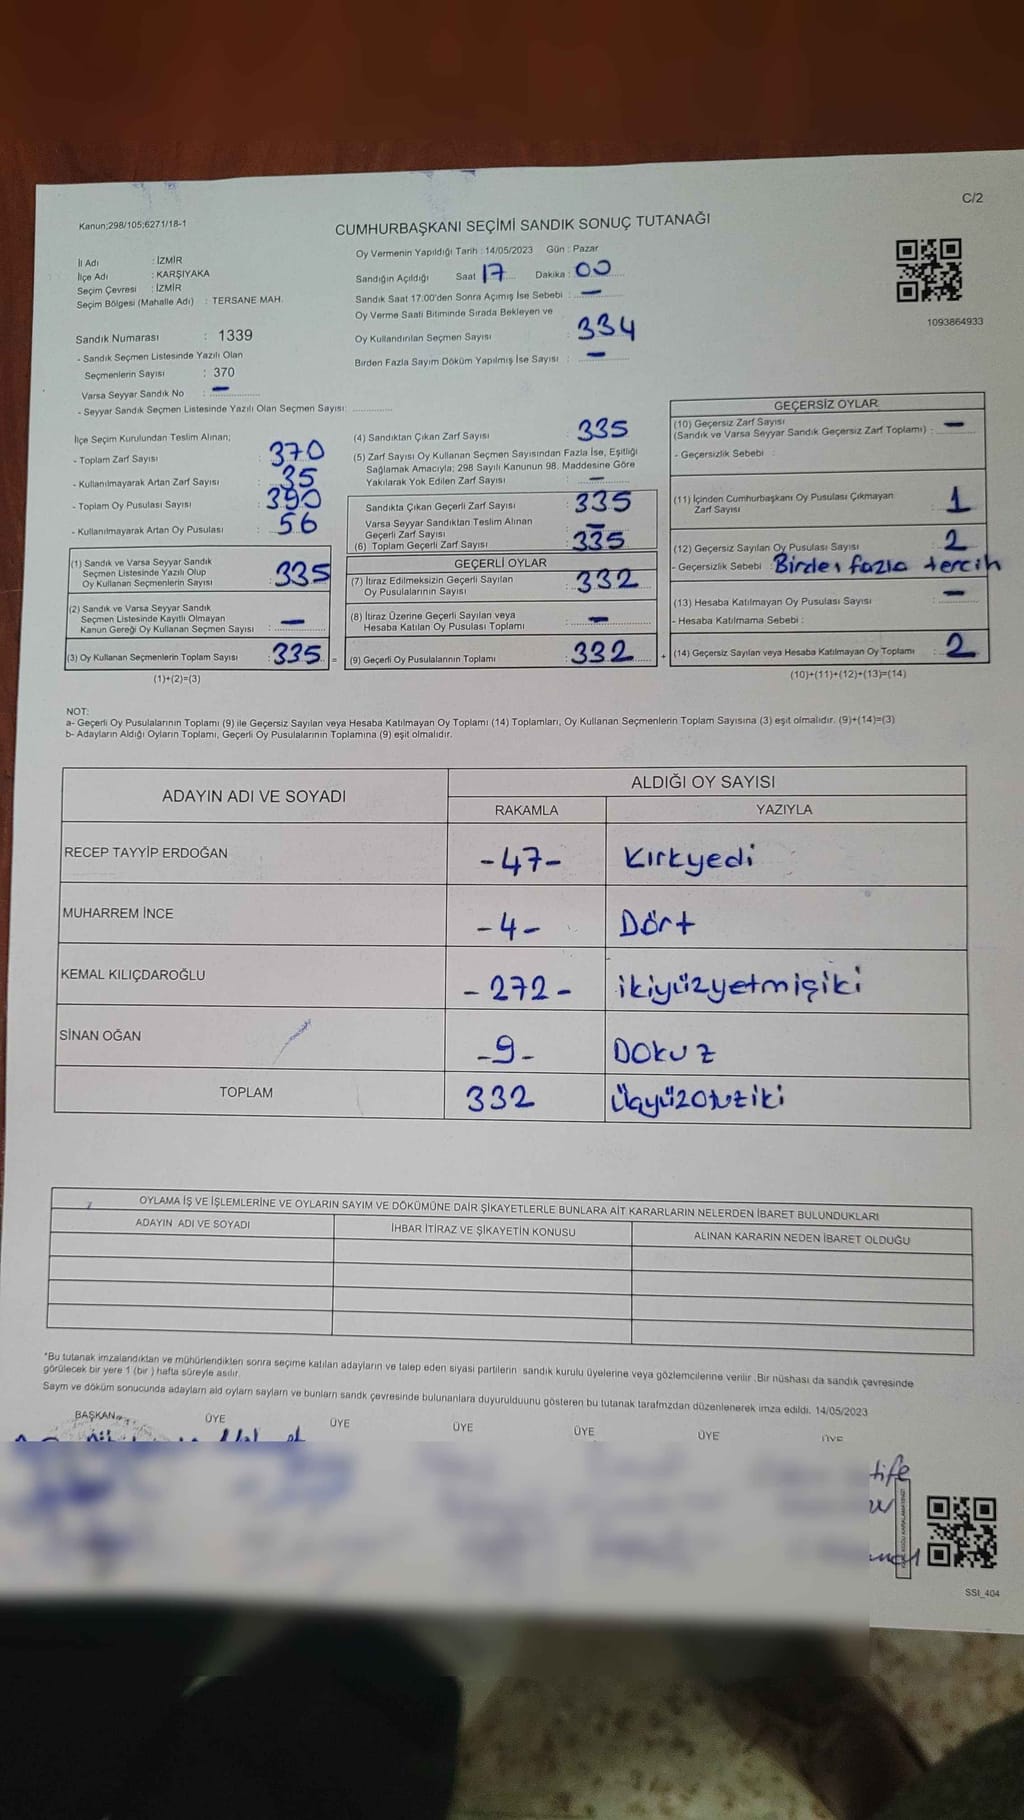 C/2
Kanun;298/105;6271/18-1
CUMHURBAŞKANI SEÇİMİ SANDIK SONUÇ TUTANAĞI
İl Adı : İZMİR
İlçe Adı : KARŞIYAKA
Seçim Çevresi : İZMİR
Seçim Bölgesi (Mahalle Adı) : TERSANE MAH.
Oy Vermenin Yapıldığı Tarih : 14/05/2023 Gün : Pazar
Sandığın Açıldığı Saat 17 Dakika : 00
Sandık Saat 17.00'den Sonra Açımış İse Sebebi : —
Oy Verme Saati Bitiminde Sırada Bekleyen ve
Oy Kullandırılan Seçmen Sayısı : 334
Birden Fazla Sayım Döküm Yapılmış İse Sayısı : —
1093864933
Sandık Numarası : 1339
- Sandık Seçmen Listesinde Yazılı Olan
Seçmenlerin Sayısı : 370
Varsa Seyyar Sandık No : —
- Seyyar Sandık Seçmen Listesinde Yazılı Olan Seçmen Sayısı: ..............
İlçe Seçim Kurulundan Teslim Alınan;
- Toplam Zarf Sayısı : 370
- Kullanılmayarak Artan Zarf Sayısı : 35
- Toplam Oy Pusulası Sayısı : 390
- Kullanılmayarak Artan Oy Pusulası : 56
(1) Sandık ve Varsa Seyyar Sandık
Seçmen Listesinde Yazılı Olup
Oy Kullanan Seçmenlerin Sayısı : 335
(2) Sandık ve Varsa Seyyar Sandık
Seçmen Listesinde Kayıtlı Olmayan
Kanun Gereği Oy Kullanan Seçmen Sayısı : —
(3) Oy Kullanan Seçmenlerin Toplam Sayısı : 335 =
(1)+(2)=(3)
(4) Sandıktan Çıkan Zarf Sayısı : 335
(5) Zarf Sayısı Oy Kullanan Seçmen Sayısından Fazla İse, Eşitliği
Sağlamak Amacıyla; 298 Sayılı Kanunun 98. Maddesine Göre
Yakılarak Yok Edilen Zarf Sayısı : —
Sandıkta Çıkan Geçerli Zarf Sayısı : 335
Varsa Seyyar Sandıktan Teslim Alınan
Geçerli Zarf Sayısı : —
(6) Toplam Geçerli Zarf Sayısı : 335
GEÇERLİ OYLAR
(7) İtiraz Edilmeksizin Geçerli Sayılan
Oy Pusulalarının Sayısı : 332
(8) İtiraz Üzerine Geçerli Sayılan veya
Hesaba Katılan Oy Pusulası Toplamı : —
(9) Geçerli Oy Pusulalarının Toplamı : 332 +
GEÇERSİZ OYLAR
(10) Geçersiz Zarf Sayısı
(Sandık ve Varsa Seyyar Sandık Geçersiz Zarf Toplamı) : —
- Geçersizlik Sebebi :
(11) İçinden Cumhurbaşkanı Oy Pusulası Çıkmayan
Zarf Sayısı : 1
(12) Geçersiz Sayılan Oy Pusulası Sayısı : 2
- Geçersizlik Sebebi : Birden fazla tercih
(13) Hesaba Katılmayan Oy Pusulası Sayısı : —
- Hesaba Katılmama Sebebi :
(14) Geçersiz Sayılan veya Hesaba Katılmayan Oy Toplamı : 2
(10)+(11)+(12)+(13)=(14)
NOT:
a- Geçerli Oy Pusulalarının Toplamı (9) ile Geçersiz Sayılan veya Hesaba Katılmayan Oy Toplamı (14) Toplamları, Oy Kullanan Seçmenlerin Toplam Sayısına (3) eşit olmalıdır. (9)+(14)=(3)
b- Adayların Aldığı Oyların Toplamı, Geçerli Oy Pusulalarının Toplamına (9) eşit olmalıdır.
ADAYIN ADI VE SOYADI ALDIĞI OY SAYISI
RAKAMLA YAZIYLA
RECEP TAYYİP ERDOĞAN -47- Kırkyedi
MUHARREM İNCE -4- Dört
KEMAL KILIÇDAROĞLU -272- ikiyüzyetmişiki
SİNAN OĞAN -9- Dokuz
TOPLAM 332 Üçyüzotuziki
OYLAMA İŞ VE İŞLEMLERİNE VE OYLARIN SAYIM VE DÖKÜMÜNE DAİR ŞİKAYETLERLE BUNLARA AİT KARARLARIN NELERDEN İBARET BULUNDUKLARI
ADAYIN ADI VE SOYADI İHBAR İTİRAZ VE ŞİKAYETİN KONUSU ALINAN KARARIN NEDEN İBARET OLDUĞU
*Bu tutanak imzalandıktan ve mühürlendikten sonra seçime katılan adayların ve talep eden siyasi partilerin sandık kurulu üyelerine veya gözlemcilerine verilir .Bir nüshası da sandık çevresinde
görülecek bir yere 1 (bir ) hafta süreyle asılır.
Sayım ve döküm sonucunda adaylarn ald oylarn saylarn ve bunlarn sandk çevresinde bulunanlara duyurulduunu gösteren bu tutanak tarafmzdan düzenlenerek imza edildi. 14/05/2023
BAŞKAN ÜYE ÜYE ÜYE ÜYE ÜYE ÜYE
SSI_404